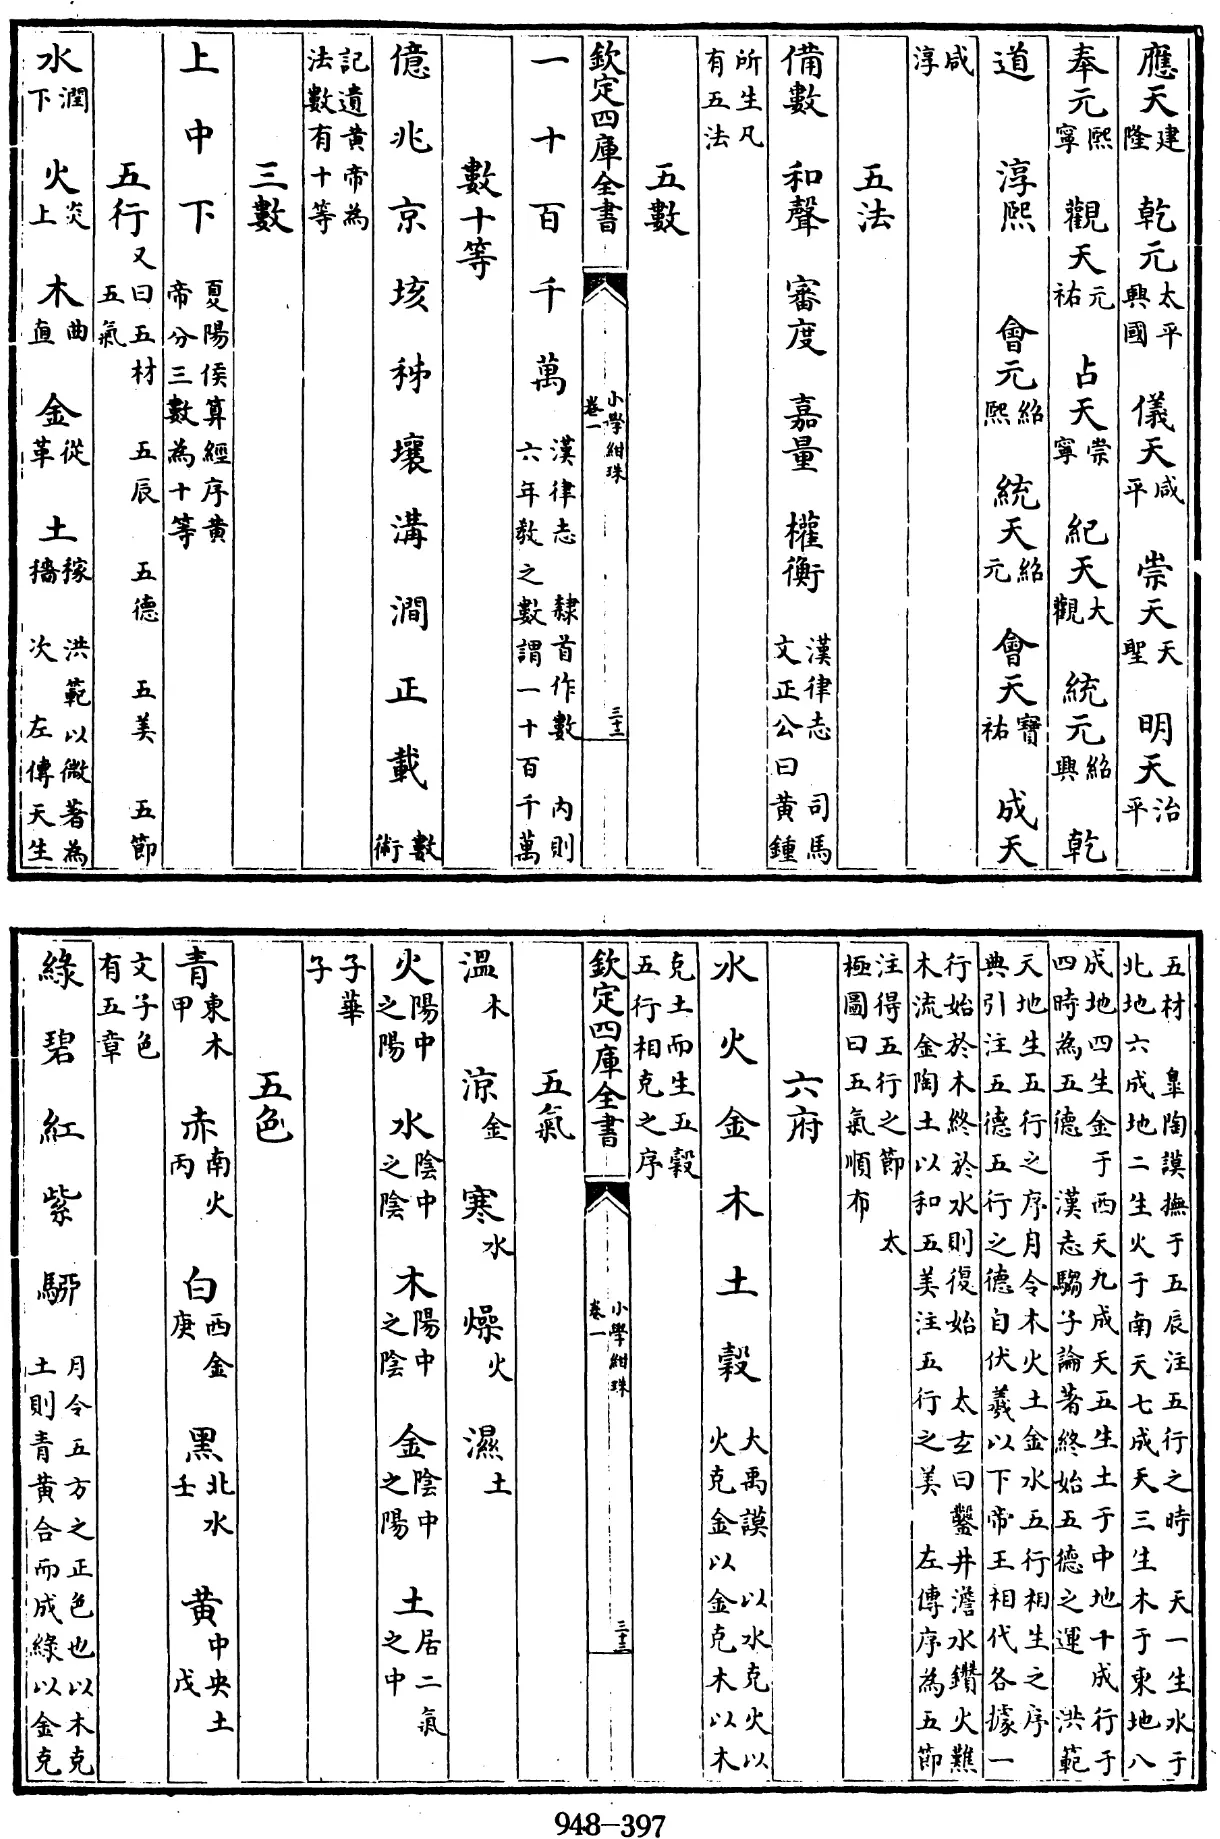 應天建隆 乾元太平興國 儀天咸平 崇天天聖 明天治平
奉元熙寧 觀天元祐 占天崇寧 紀天大觀 統元紹興 乾
道 淳熙 會元紹熙 統天紹元 會天寶祐 成天
咸淳
五法
備數 和聲 審度 嘉量 權衡 漢律志 司馬文正公曰黃鍾
所生凡有五法
五數
欽定四庫全書 小學紺珠 卷一 三十二
一十百千萬 漢律志 隸首作數 內則六年教之數謂一十百千萬
數十等
億兆京垓秭壤溝澗正載 數術
記遺黃帝為法數有十等
三數
上中下 夏陽侯算經序黃帝分三數為十等
五行又曰五材 五辰 五德 五美 五節 五氣
水潤下 火炎上 木曲直 金從革 土稼穡 洪範以微著為次 左傳天生
五材 臯陶謨撫于五辰注五行之時 天一生水于
北地六成地二生火于南天七成天三生木于東地八
成地四生金于西天九成天五生土于中地十成行于
四時為五德 漢志騶子論著終始五德之運 洪範
天地生五行之序月令木火土金水五行相生之序
典引注五德五行之德自伏羲以下帝王相代各據一
行始於木終於水則復始 太玄曰鑿井澹水鑽火難
木流金陶土以和五美注五行之美 左傳序為五節
注得五行之節 太
極圖曰五氣順布
六府
水火金木土穀 大禹謨 以水克火以火克金以金克木以木
克土而生五穀五行相克之序
欽定四庫全書 小學紺珠 卷一 三十三
五氣
溫木 涼金 寒水 燥火 濕土
火陽中之陽 水陰中之陰 木陽中之陰 金陰中之陽 土居二氣之中
子華子
五色
青東木甲 赤南火丙 白西金庚 黑北水壬 黃中央土戊
文子色有五章
綠碧紅紫駵 月令五方之正色也以木克土則青黃合而成綠以金克
948-397